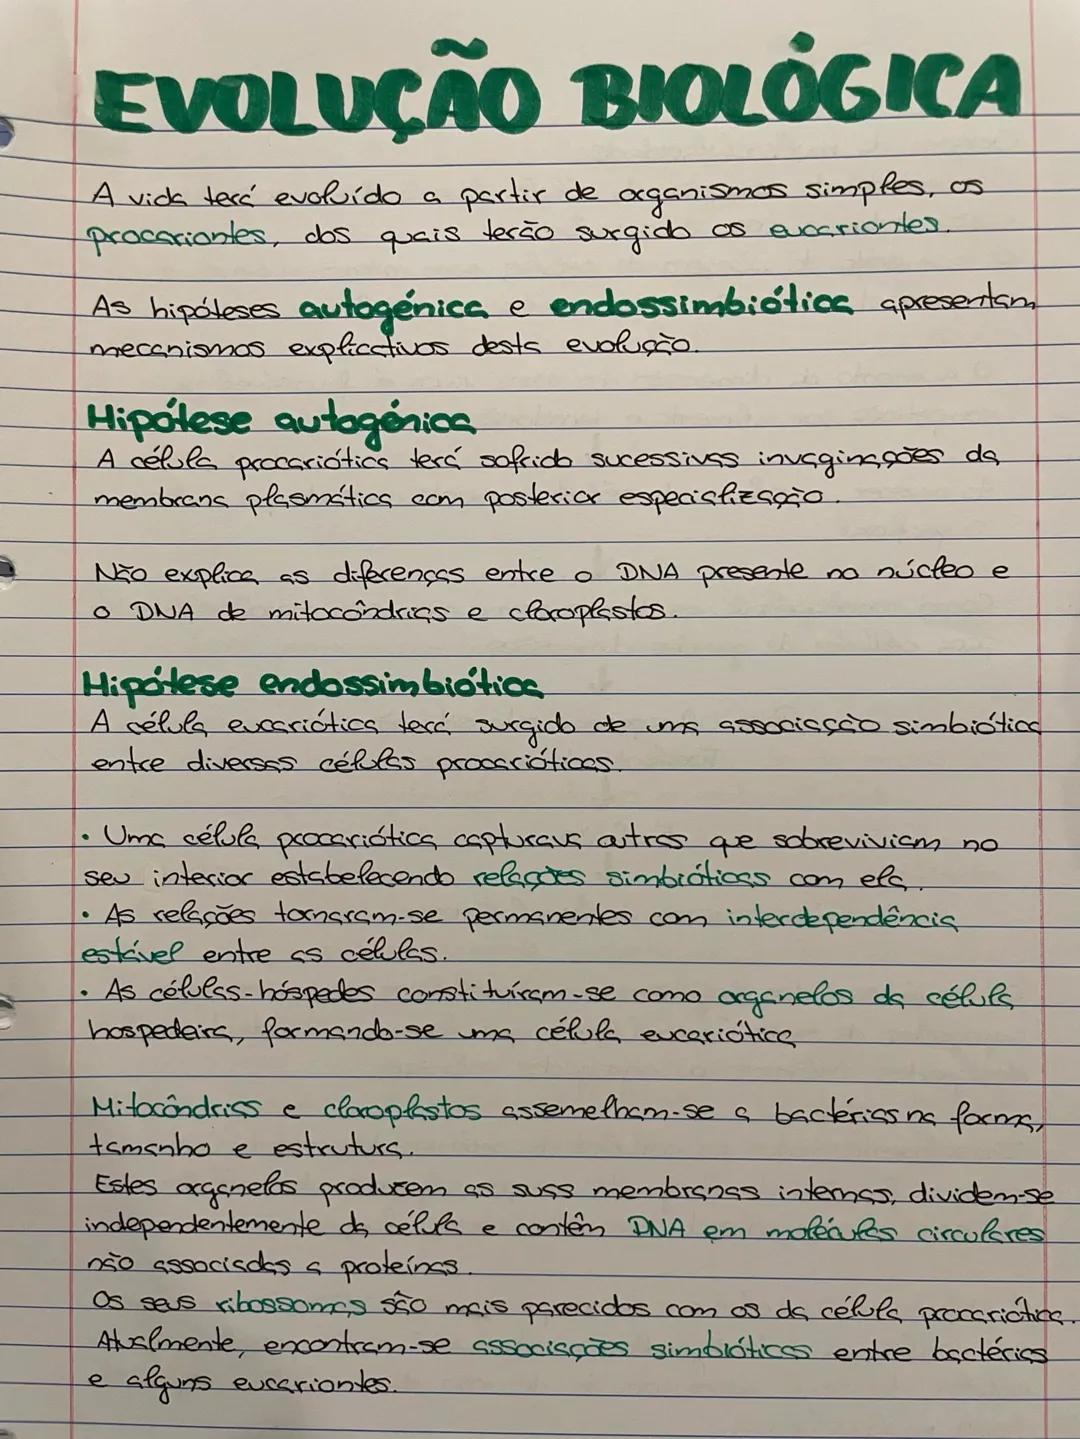 EVOLUÇÃO BIOLÓGICA
A vida terá evoluído a partir de organismos simples, os
procariontes, dos quais terão surgido os eucariontes.
As hipóteses autogénica e endossimbiótica apresentam
mecanismos explicativos desta evolução.
Hipótese autogénica
A célula procariótica terá sofrido sucessivas invaginações da
membrana plasmática com posterior especialização.
Não explica as diferenças entre o DNA presente no núcleo e
o DNA de mitocôndrias e cloroplastos.
Hipótese endossimbiótica
A célula eucariótica terá surgido de uma associação simbiótica
entre diversas células procarióticas.
• Uma célula procariótica capturava outras que sobreviviam no
seu interior estabelecendo relações simbióticas com ela.
• As relações tornaram-se permanentes com interdependência
estável entre as células.
• As células-hóspedes constituíram-se como organelos da célula
hospedeira, formando-se uma célula eucariótica
Mitocôndrias e cloroplastos assemelham-se a bactérias na forma,
tamanho e estrutura.
Estes organelos produzem as suas membranas internas, dividem-se
independentemente da célula e contêm DNA em moléculas circulares
não associadas a proteínas.
Os seus ribossomas são mais parecidos com os da célula procariótica.
Atualmente, encontram-se associações simbióticas entre bactérias
e alguns eucariontes.